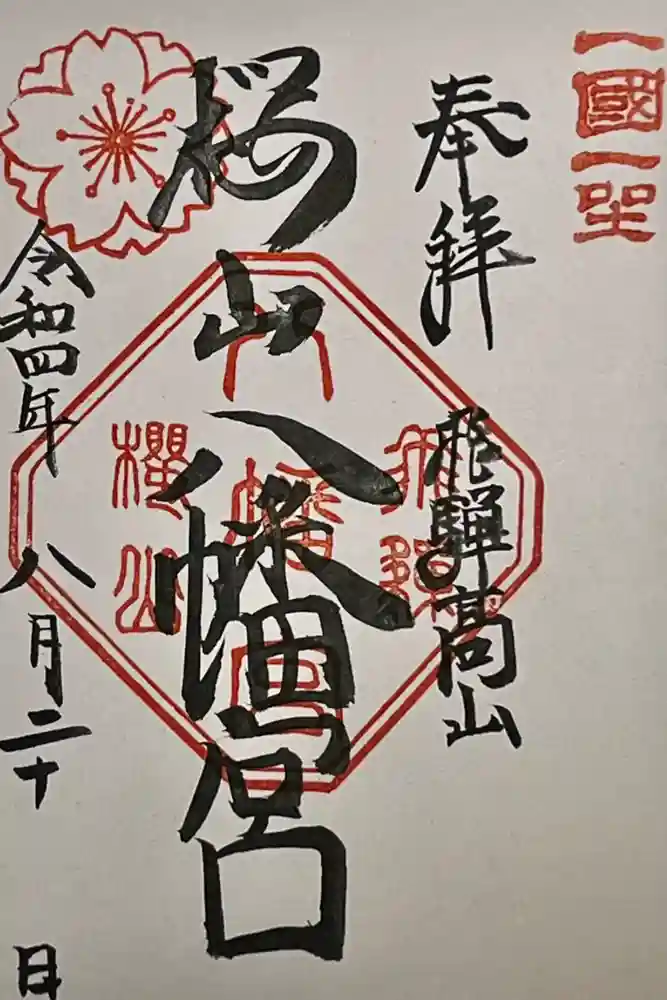 一國一坐
奉拝
飛騨髙山
桜山八幡宮
飛騨
八幡宮
櫻山
令和四年八月二十日